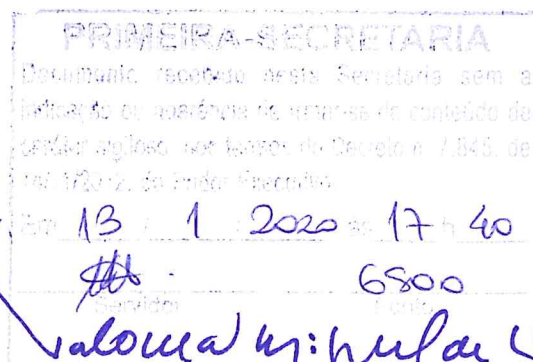 PRIMEIRA-SECRETARIA
Documento recebido nesta Secretaria sem a
indicação ou aparência de tratar-se de conteúdo de
caráter sigiloso, nos termos do Decreto n. 7.845, de
14/11/2012, do Poder Executivo.
Em 13 / 1 2020 às 17 h 40
6800
Servidor Ponto